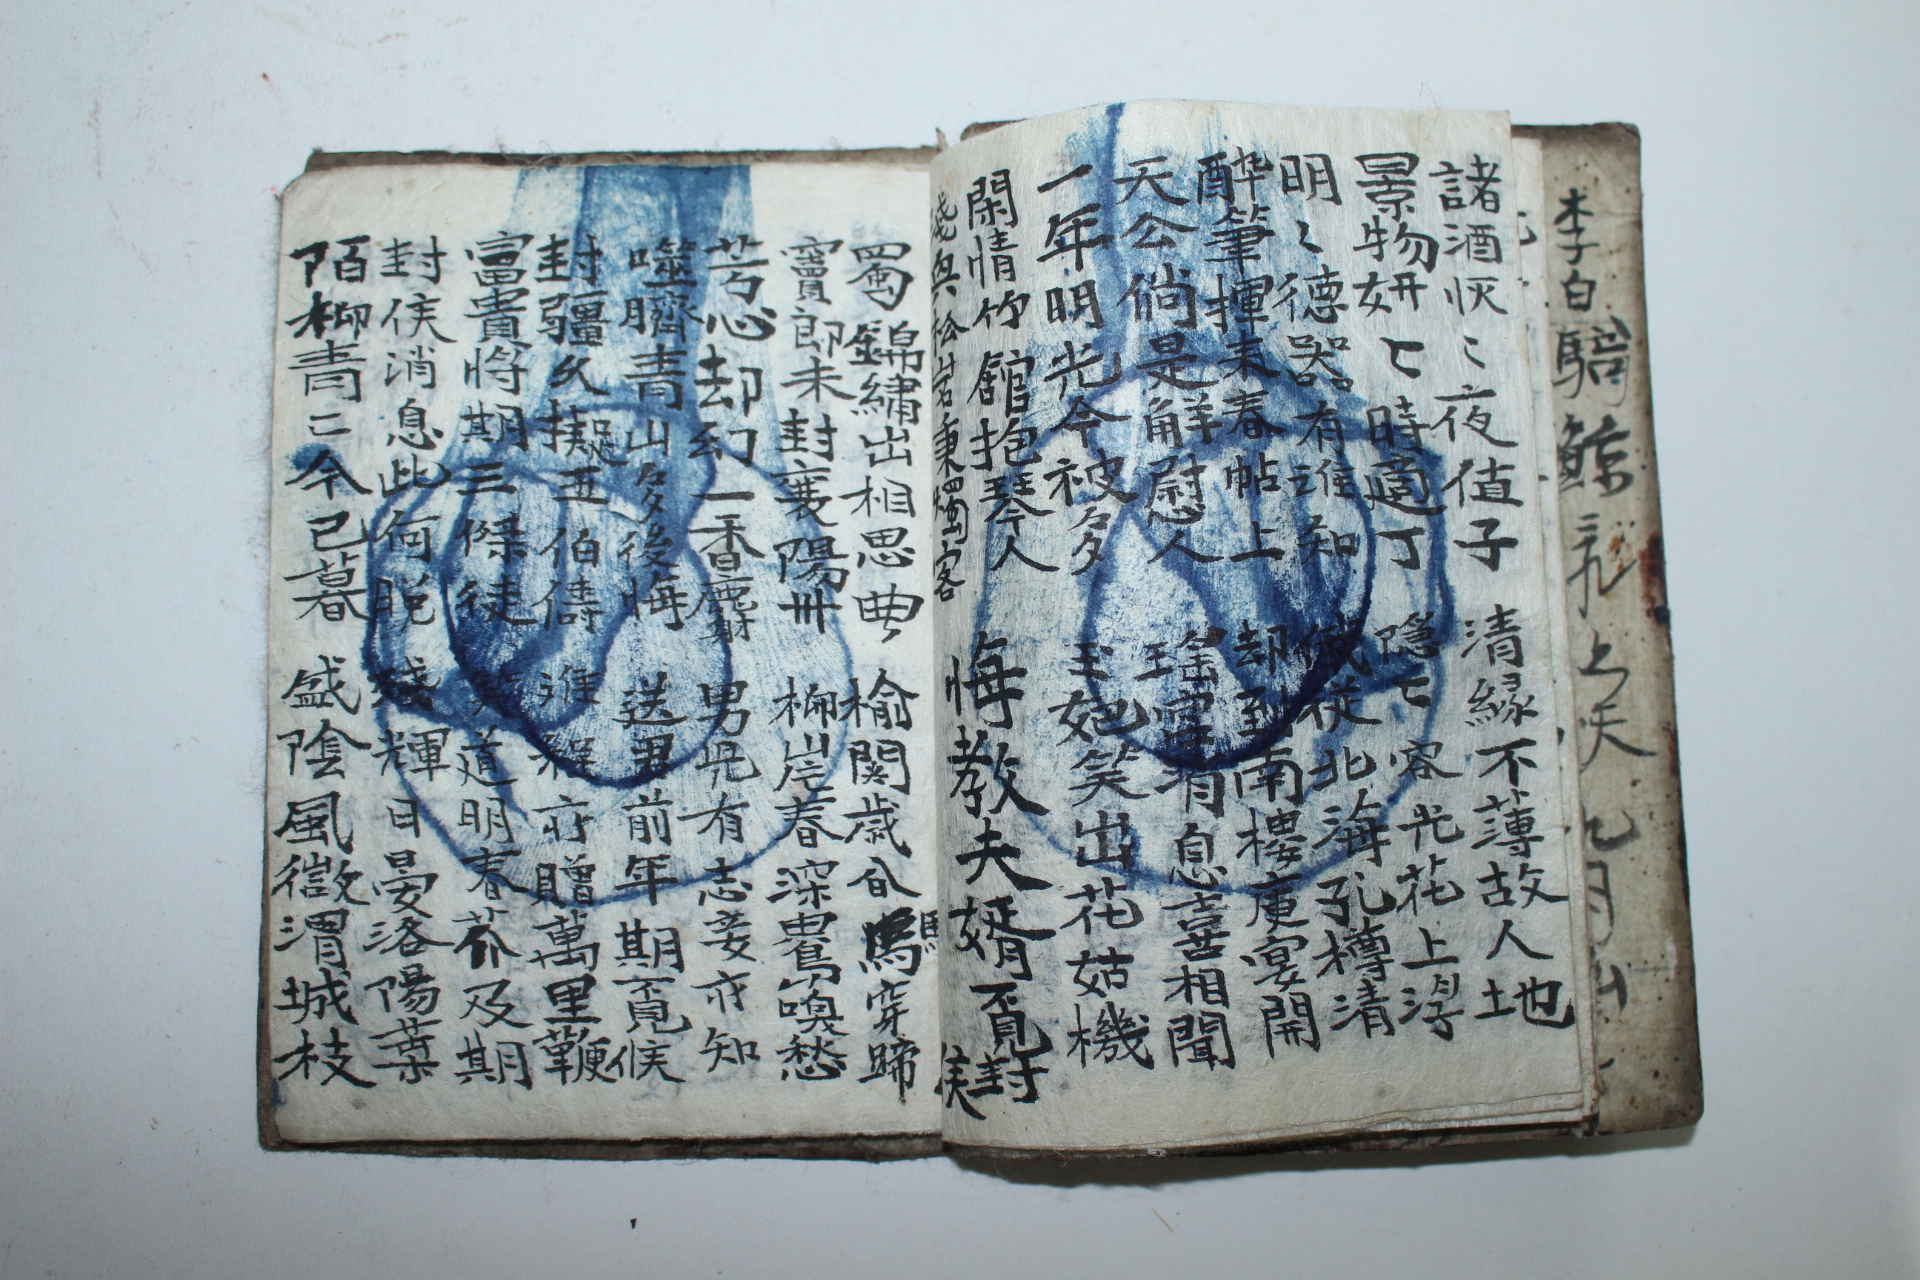 李白騎鯨飛上天九月
諸酒灰〻夜值子 清緣不薄故人地
景物妍〻時適丁 隱〻容光花上浮
明〻德器有誰知 俄從北海孔樽清
醉筆揮來春帖上 却到南樓庾宴開
天公倘是解慰人 瑤宮有息喜相聞
一年明光今被多 玉妃笑出花姑機
閑情竹館抱琴人
殘與松岩秉燭客
悔教夫婿覓封侯
蜀錦繡出相思曲 榆關歲命馬穿蹄
竇郎未封襄陽卅 柳岸春深鶯喚愁
芳心却幻一香麝 男兒有志妾亦知
噬臍青山多後悔 送君前年期覓侯
封疆久擬五伯儔 進程亦贈萬里鞭
富貴將期三傑徒 笑道明春莾及期
封侯消息此何脫 殘輝日晏洛陽葉
陌柳青〻今已暮 盛陰風徵渭城枝